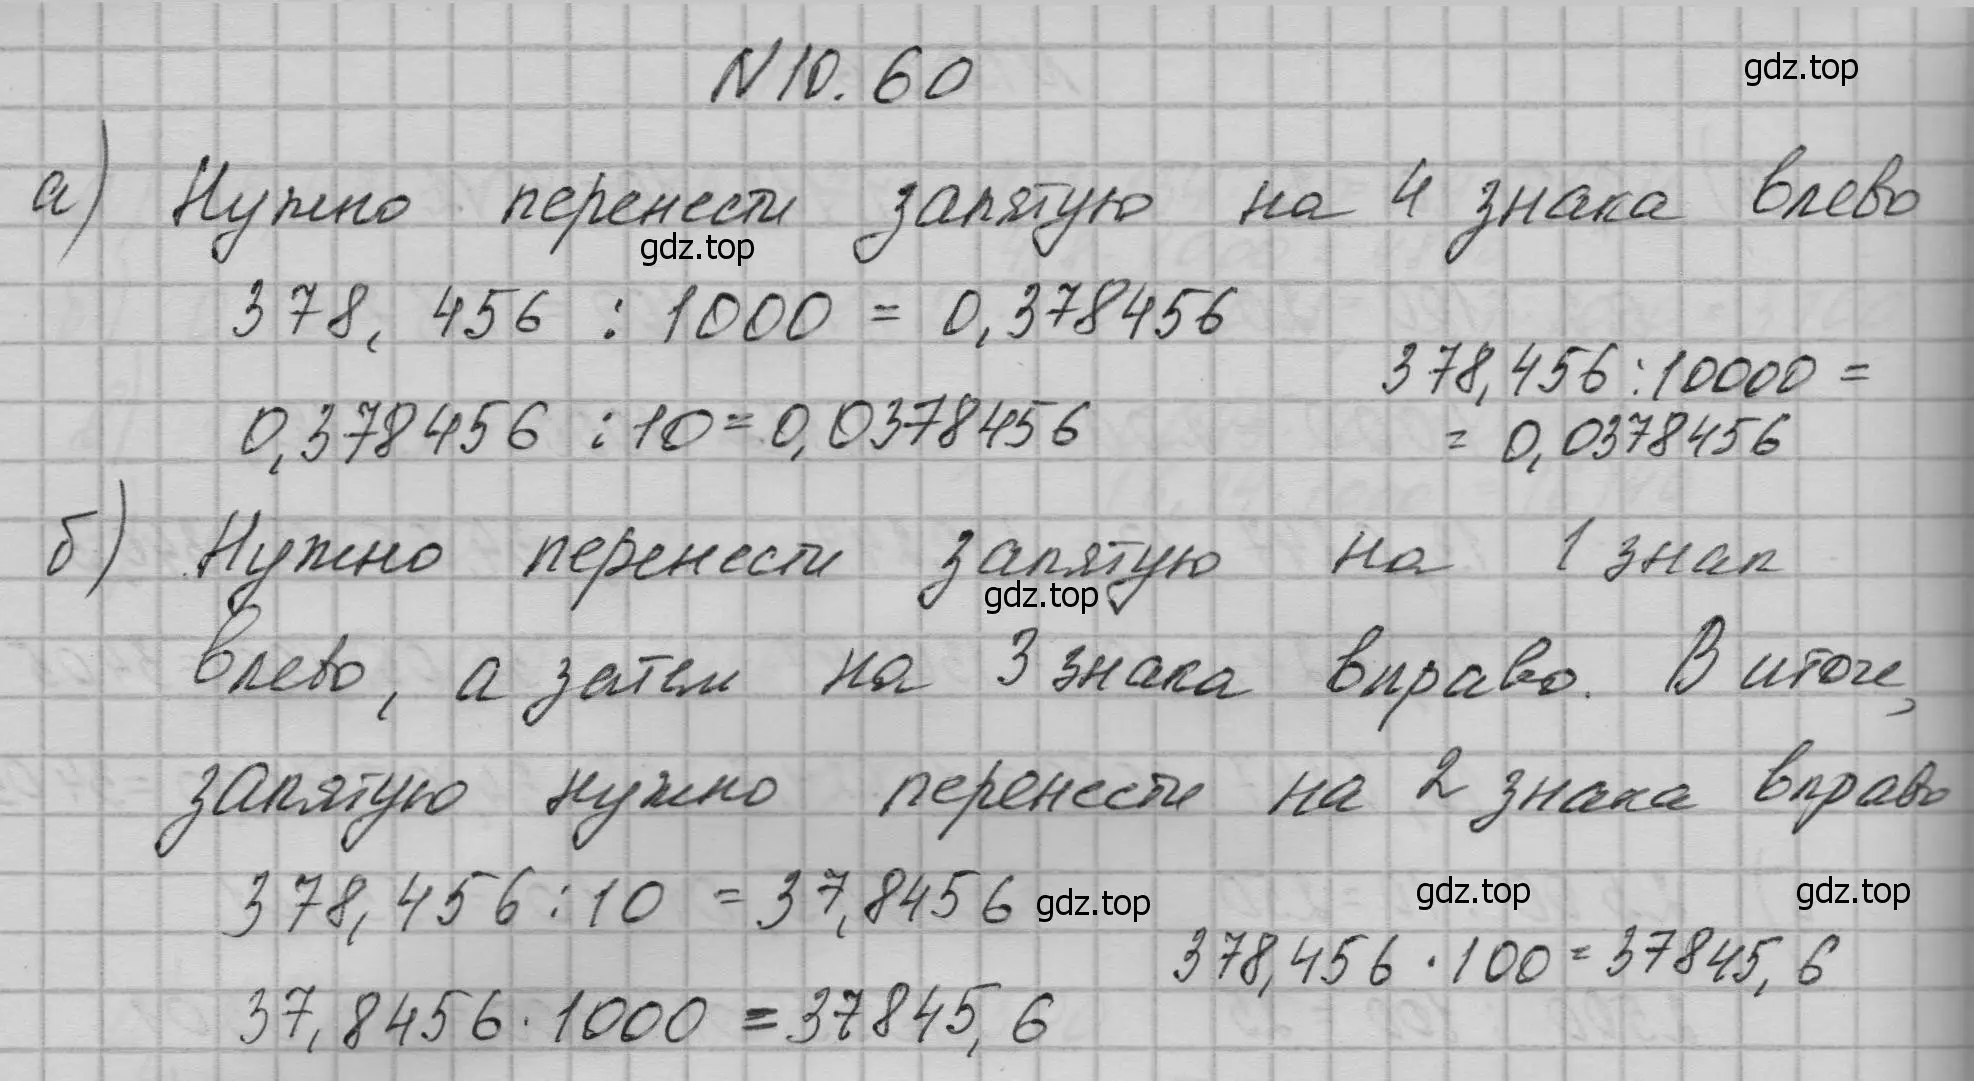 N 10.60
gdz.top
а) Нужно перенести запятую на 4 знака влево
gdz.top
378,456 : 1000 = 0,378456
378,456 : 10000 =
0,378456 : 10 = 0,0378456
= 0,0378456
б) Нужно перенести запятую на 1 знак
gdz.top
влево, а затем на 3 знака вправо. В итоге,
запятую нужно перенести на 2 знака вправо
378,456 : 10 = 37,8456
gdz.top
gdz.top
gdz.top
378,456 · 100 = 37845,6
37,8456 · 1000 = 37845,6